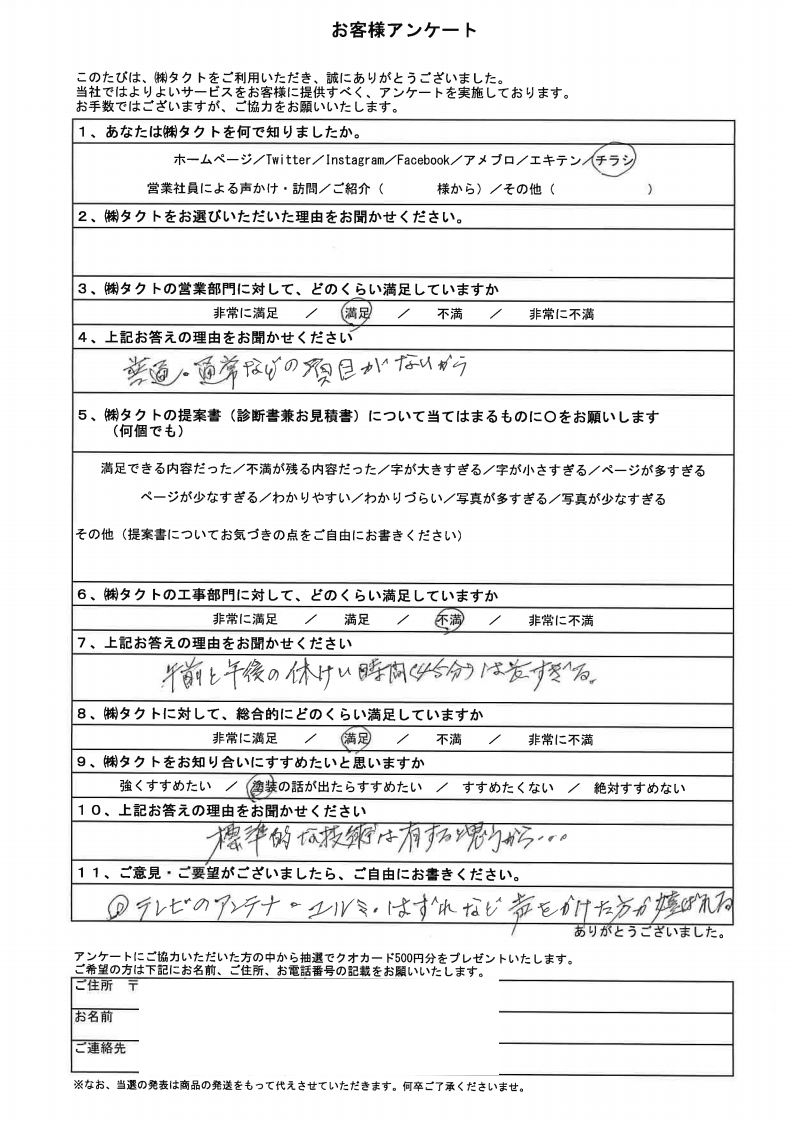 お客様アンケート
このたびは、㈱タクトをご利用いただき、誠にありがとうございました。
当社ではよりよいサービスをお客様に提供すべく、アンケートを実施しております。
お手数ではございますが、ご協力をお願いいたします。
１、あなたは㈱タクトを何で知りましたか。
ホームページ／Twitter／Instagram／Facebook／アメブロ／エキテン／チラシ
営業社員による声かけ・訪問／ご紹介（　　　　様から）／その他（　　　　　　　）
２、㈱タクトをお選びいただいた理由をお聞かせください。
３、㈱タクトの営業部門に対して、どのくらい満足していますか
非常に満足　／　満足　／　不満　／　非常に不満
４、上記お答えの理由をお聞かせください
普通。通常などの項目がないから
５、㈱タクトの提案書（診断書兼お見積書）について当てはまるものに〇をお願いします
（何個でも）
満足できる内容だった／不満が残る内容だった／字が大きすぎる／字が小さすぎる／ページが多すぎる
ページが少なすぎる／わかりやすい／わかりづらい／写真が多すぎる／写真が少なすぎる
その他（提案書についてお気づきの点をご自由にお書きください）
６、㈱タクトの工事部門に対して、どのくらい満足していますか
非常に満足　／　満足　／　不満　／　非常に不満
７、上記お答えの理由をお聞かせください
午前と午後の休けい時間(45分)は長すぎる。
８、㈱タクトに対して、総合的にどのくらい満足していますか
非常に満足　／　満足　／　不満　／　非常に不満
９、㈱タクトをお知り合いにすすめたいと思いますか
強くすすめたい　／　塗装の話が出たらすすめたい　／　すすめたくない　／　絶対すすめない
１０、上記お答えの理由をお聞かせください
標準的な技術は有すると思うから…
１１、ご意見・ご要望がございましたら、ご自由にお書きください。
テレビのアンテナ・ユルミ・はずれなど声をかけた方が喜ばれる
ありがとうございました。
アンケートにご協力いただいた方の中から抽選でクオカード500円分をプレゼントいたします。
ご希望の方は下記にお名前、ご住所、お電話番号の記載をお願いいたします。
ご住所　〒
お名前
ご連絡先
※なお、当選の発表は商品の発送をもって代えさせていただきます。何卒ご了承くださいませ。